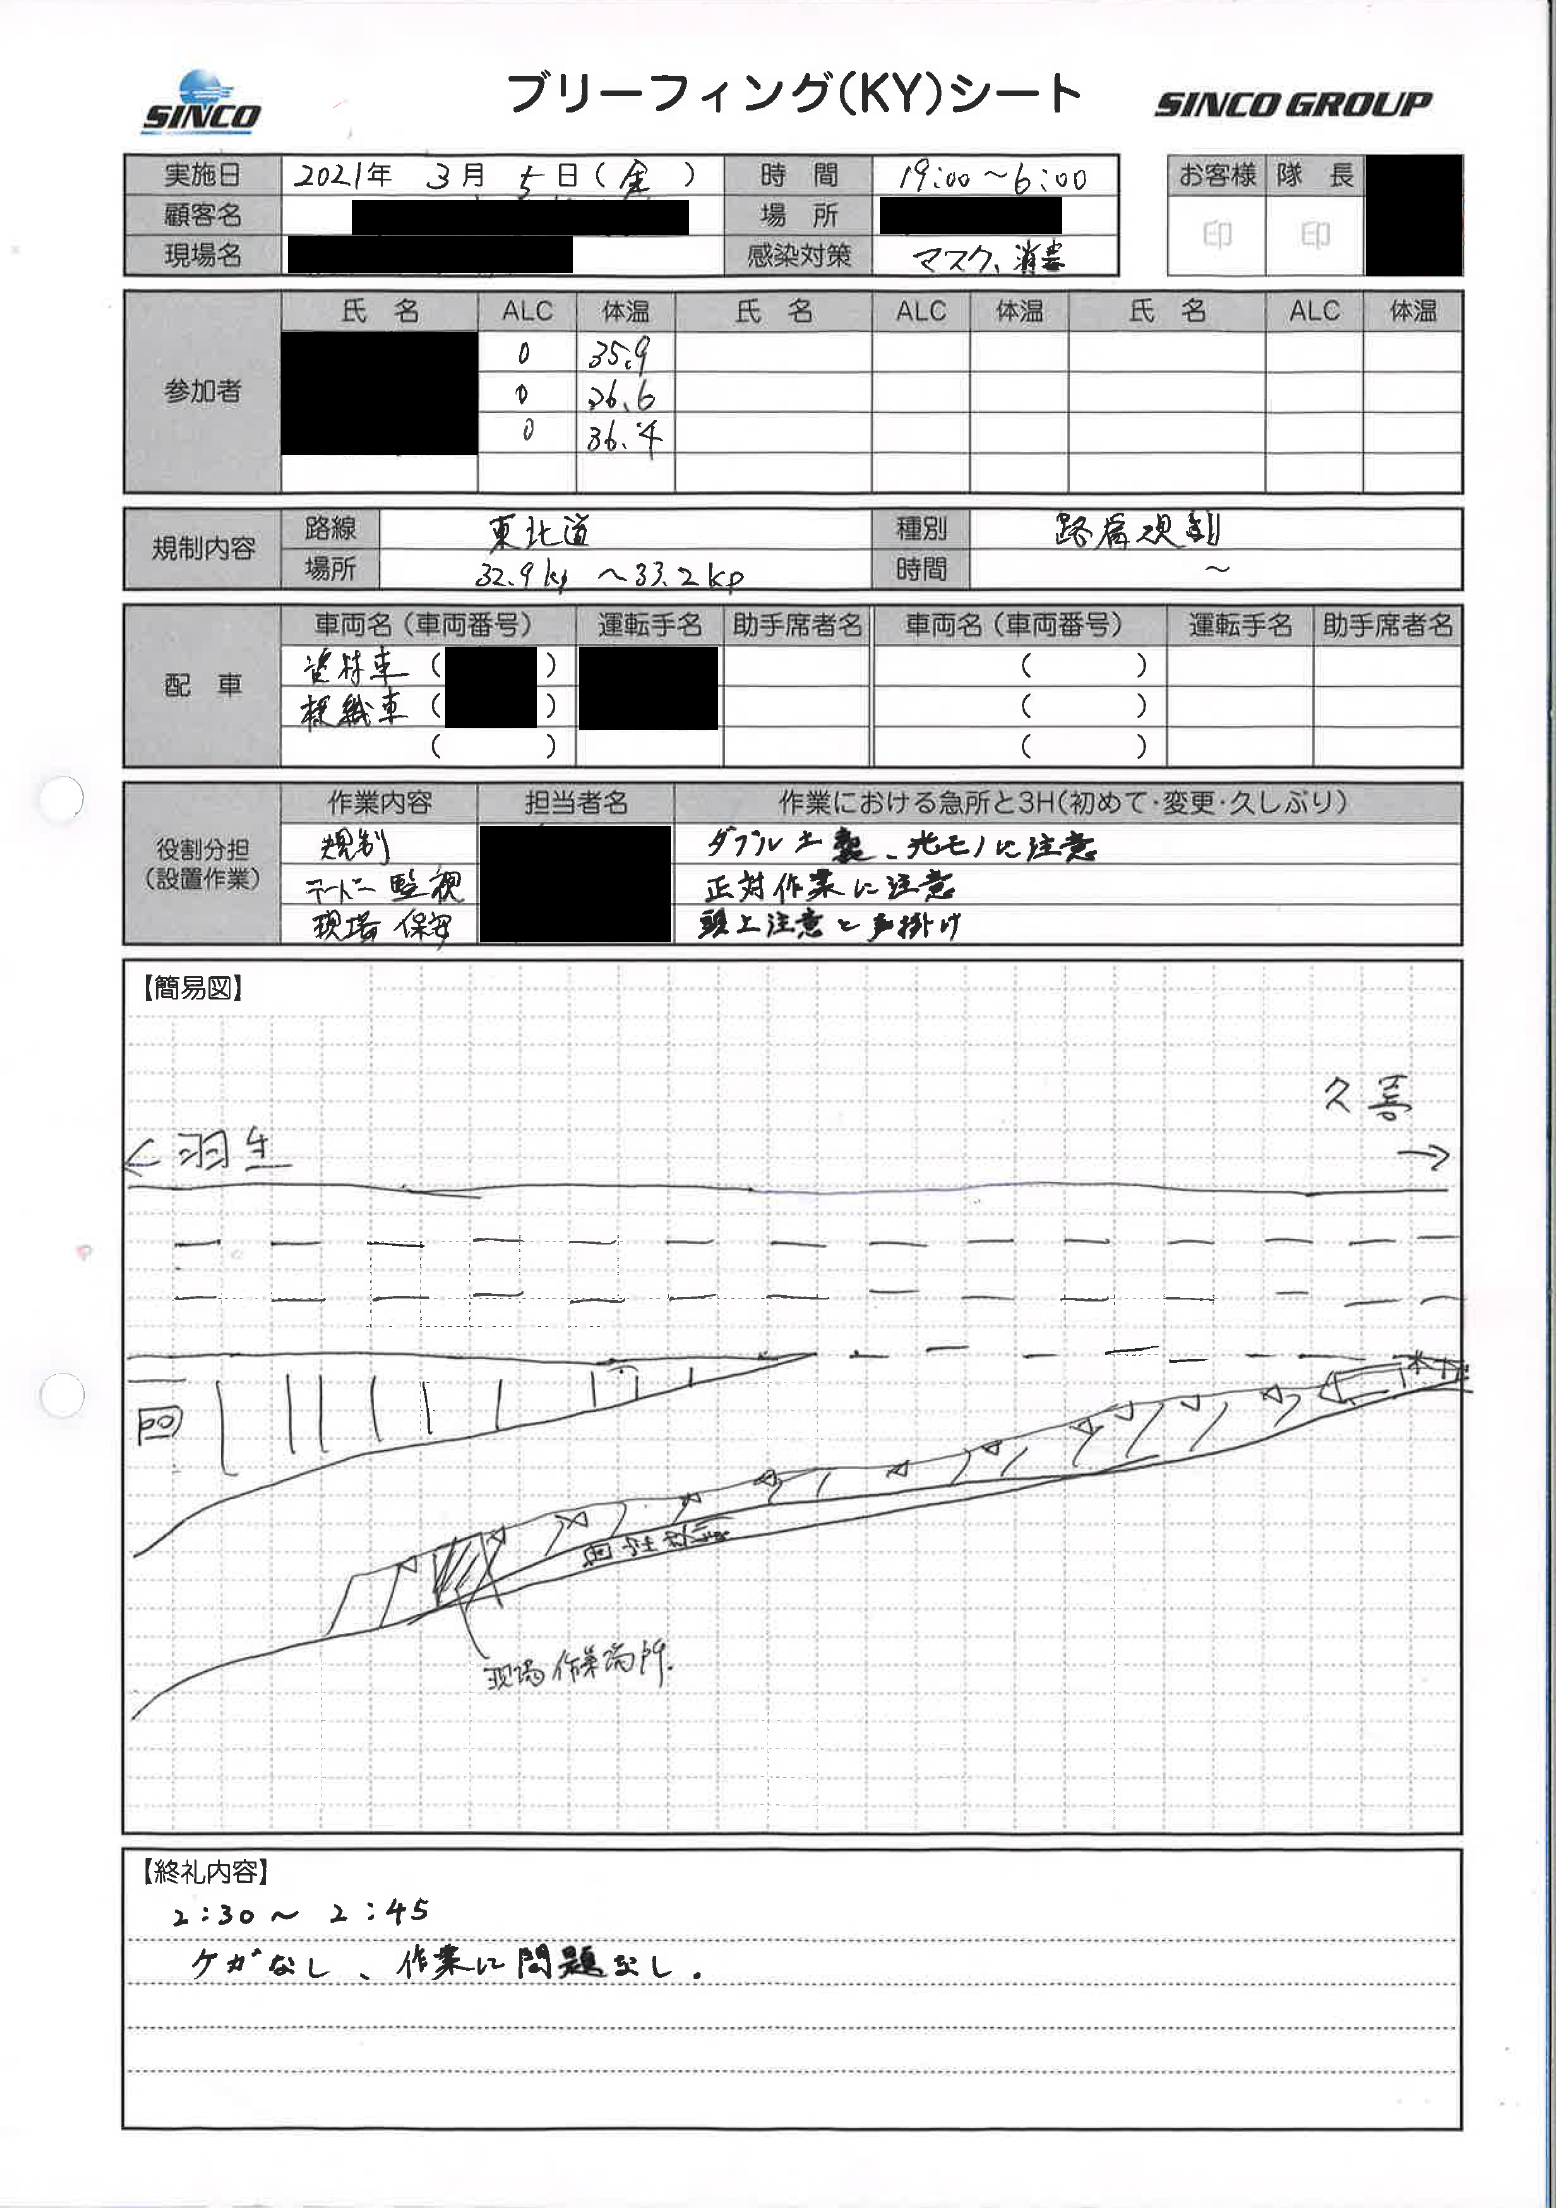 SINCO
ブリーフィング(KY)シート
SINCO GROUP
実施日 2021年 3月 5日(金) 時 間 19:00~6:00
お客様 隊 長
顧客名 場 所
印 印
現場名 感染対策 マスク、消毒
参加者
氏 名 ALC 体温 氏 名 ALC 体温 氏 名 ALC 体温
0 35.9
0 36.6
0 36.4
規制内容
路線 東北道 種別 路肩規制
場所 32.9kp ~33.2kp 時間 ~
配 車
車両名(車両番号) 運転手名 助手席者名 車両名(車両番号) 運転手名 助手席者名
資材車( ) ( )
標識車( ) ( )
( ) ( )
役割分担
(設置作業)
作業内容 担当者名 作業における急所と3H(初めて・変更・久しぶり)
規制 ダブル土嚢、光モノに注意
テーパー監視 正対作業に注意
現場保安 頭上注意と声掛け
【簡易図】
久喜
→
← 羽生
現場作業箇所.
【終礼内容】
2:30~ 2:45
ケガなし、作業に問題なし.